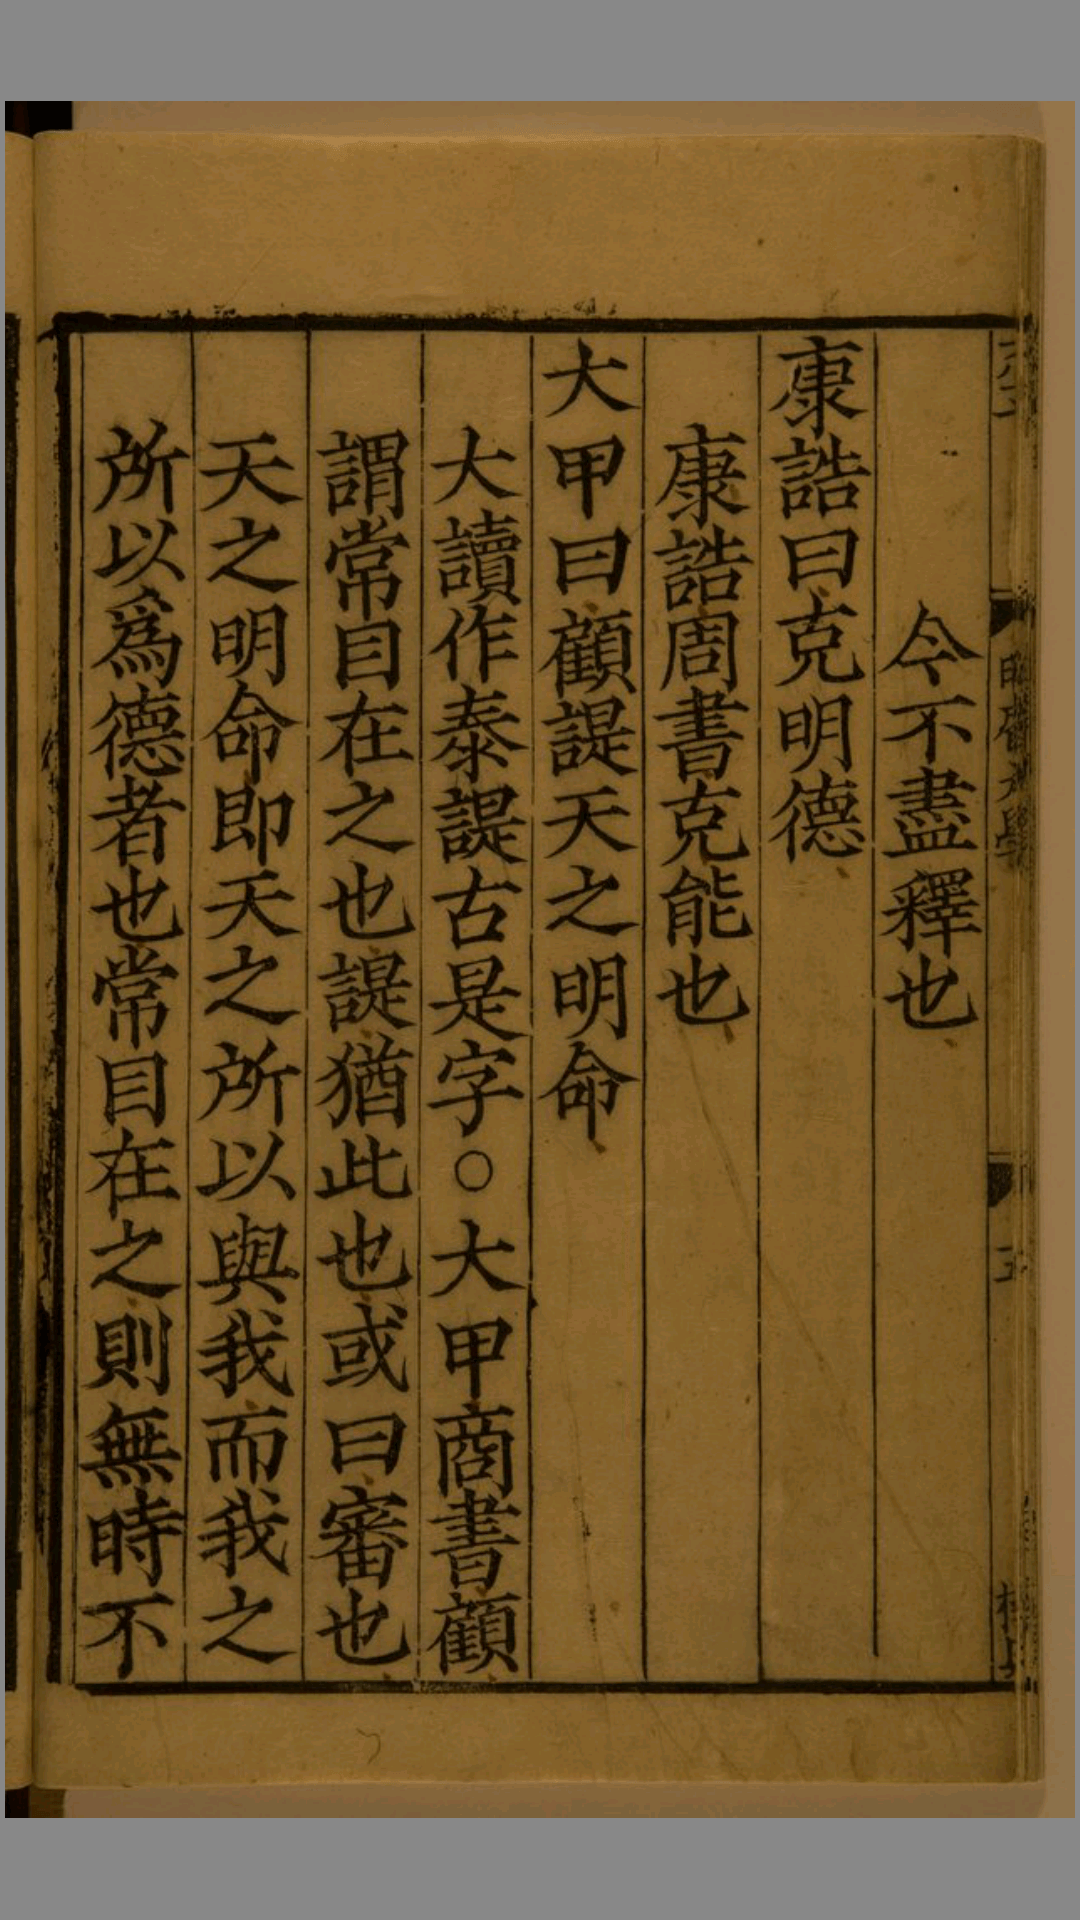 今不盡釋也
康誥曰克明德
康誥周書克能也
大甲曰顧諟天之明命
大讀作泰諟古是字○大甲商書顧
謂常目在之也諟猶此也或曰審也
天之明命即天之所以與我而我之
所以爲德者也常目在之則無時不